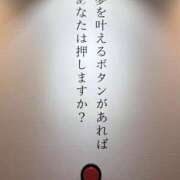 夢を叶えるボタンがあれば
あなたは押しますか？